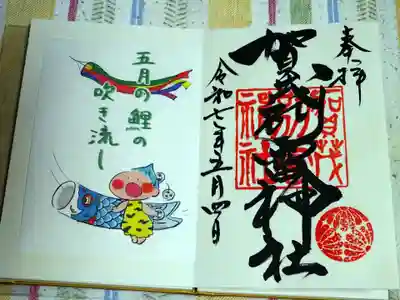 奉拝
賀茂別雷神社
令和七年五月四日
賀茂
五月の
鯉の
吹き流し